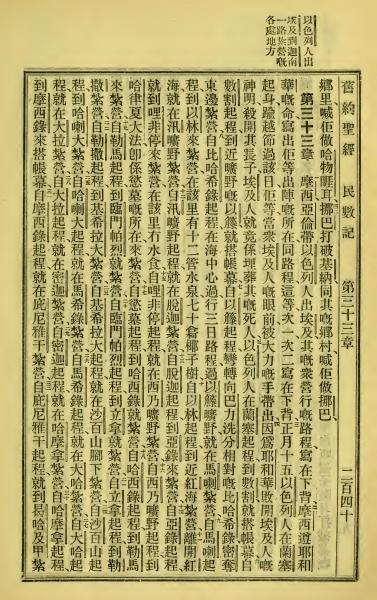 以色列人出
埃及到迦南
一路紮營嘅
各處地方
舊約聖經 民數記 第三十三章 二百四十
鄉里喊佢做哈物匪耳、挪巴打破基納同其嘅鄉村喊佢做挪巴、
第三十三章 摩西亞倫帶以色列人出埃及其嘅衆營行嘅路程寫在下背、摩西遵耶和
華嘅命寫出佢等出陣嘅所在同路程這等次一次二寫在下背、正月十五以色列人在蘭塞
起身、踰越節過該日佢等當衆埃及人嘅眼前被大力嘅手帶出、因爲耶和華敗開埃及人嘅
神明殺開其長子、埃及人就竟係埋葬其嘅死人、以色列人在蘭塞起程到數割就搭帳幕、自
數割起程到近曠野嘅以籐就搭帳幕、自以籐起程彎轉向巴力洗分相對嘅比哈希錄密奪
東邊紮營、自比哈希錄起程在海中心過行三日路程過以籐曠野就在馬喇紮營、自馬喇起
程到以林來紮營、在該里有十二管水泉、七十翕椰子樹、自以林起程到近紅海紮營、離開紅
海就在汛曠野紮營、自汛曠野起程就在脫迦紮營、自脫迦起程到亞錄來紮營、自亞錄起程
就到哩非停來紮營、在該里有水食、自哩非停起程就在西乃曠野紮營、自西乃曠野起程到
哈律夏大法卽係慾墓嘅所在來紮營、自慾墓起程到哈西錄就紮營、自哈西錄起程到勒馬
來紮營、自勒馬起程到臨門帕烈就紮營、自臨門帕烈起程到立拿就紮營、自立拿起程到勒
撒紮營、自勒撒起程到基希拉大紮營、自基希拉大起程就在沙百山腳下紮營、自沙百山起
程到哈喇大紮營、自哈喇大起程就在馬希錄紮營、自馬希錄起程就在大哈紮營、自大哈起
程就在大拉紮營、自大拉起程就在密迦紮營、自密迦起程就在哈摩拿紮營、自哈摩拿起程
到摩西錄來搭帳幕、自摩西錄起程就在庇尼雅干紮營、自庇尼雅干起程就到曷哈及甲紮